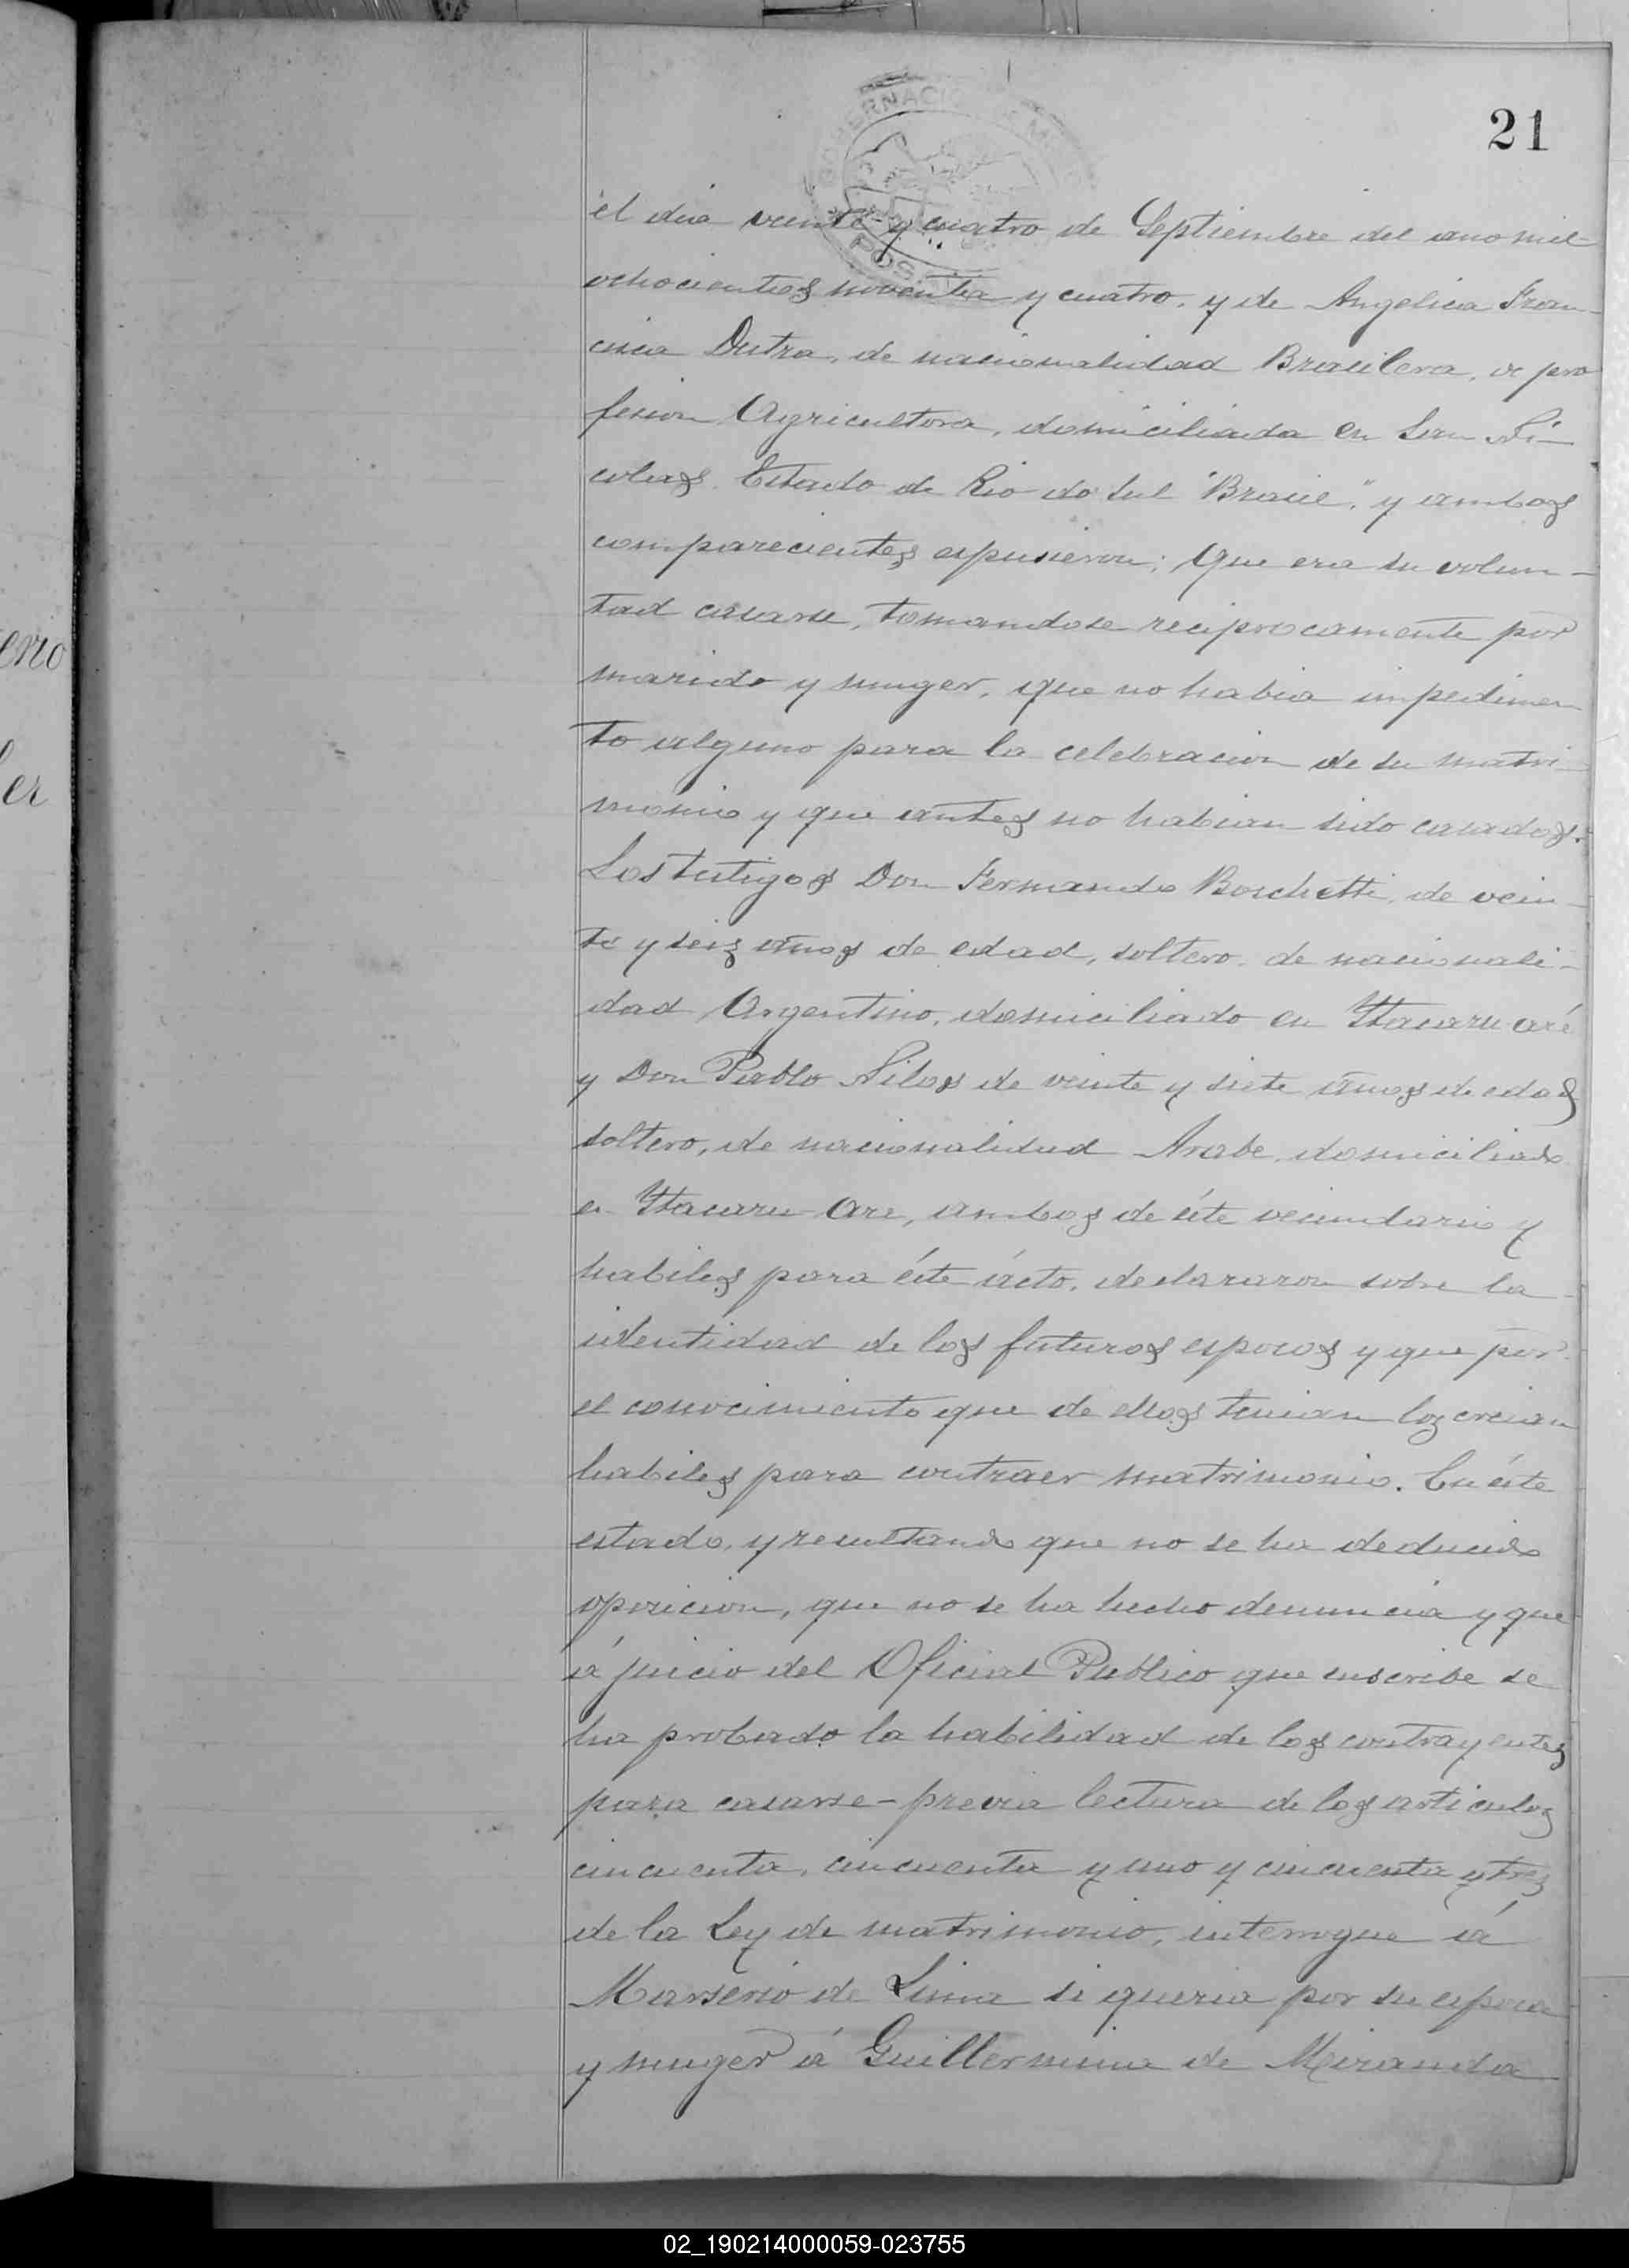 21
GOBERNACION
POS
el dia veinte y cuatro de Septiembre del año mil
ochocientos noventa y cuatro, y de Angelica Fran-
cisca Dutra, de nacionalidad Brasilera, de pro
fesion Agricultora, domiciliada en San Ni-
colas. Estado de Rio do Sul "Brasil", y ambos
comparecientes espusieron; Que era su volun-
tad casarse, tomandose reciprocamente por
marido y muger, que no habia impedimen
to alguno para la celebracion de su matri-
monio y que antes no habian sido casados.
Los testigos Don Fernando Boschetti, de vein-
te y seis años de edad, soltero, de nacionali-
dad Argentino, domiciliado en Itacaruaré
y Don Pablo Silos de veinte y siete años de edad
soltero, de nacionalidad Arabe, domiciliado
en Itacaru-are, ambos de éste vecindario y
habiles para éste ácto, declararon sobre la
identidad de los futuros esposos y que por
el conocimiento que de ellos tenian los creian
habiles para contraer matrimonio. En éste
estado, y resultando que no se ha deducido
oposicion, que no se ha hecho denuncia y que
á juicio del Oficial Publico que suscribe se
ha probado la habilidad de los contrayentes
para casarse - previa lectura de los articulos
cincuenta, cincuenta y uno y cincuenta y tres
de la Ley de matrimonio, interrogue á
Marserio de Lima si queria por su esposa
y muger á Guillermina de Miranda
erro
er
02_190214000059-023755